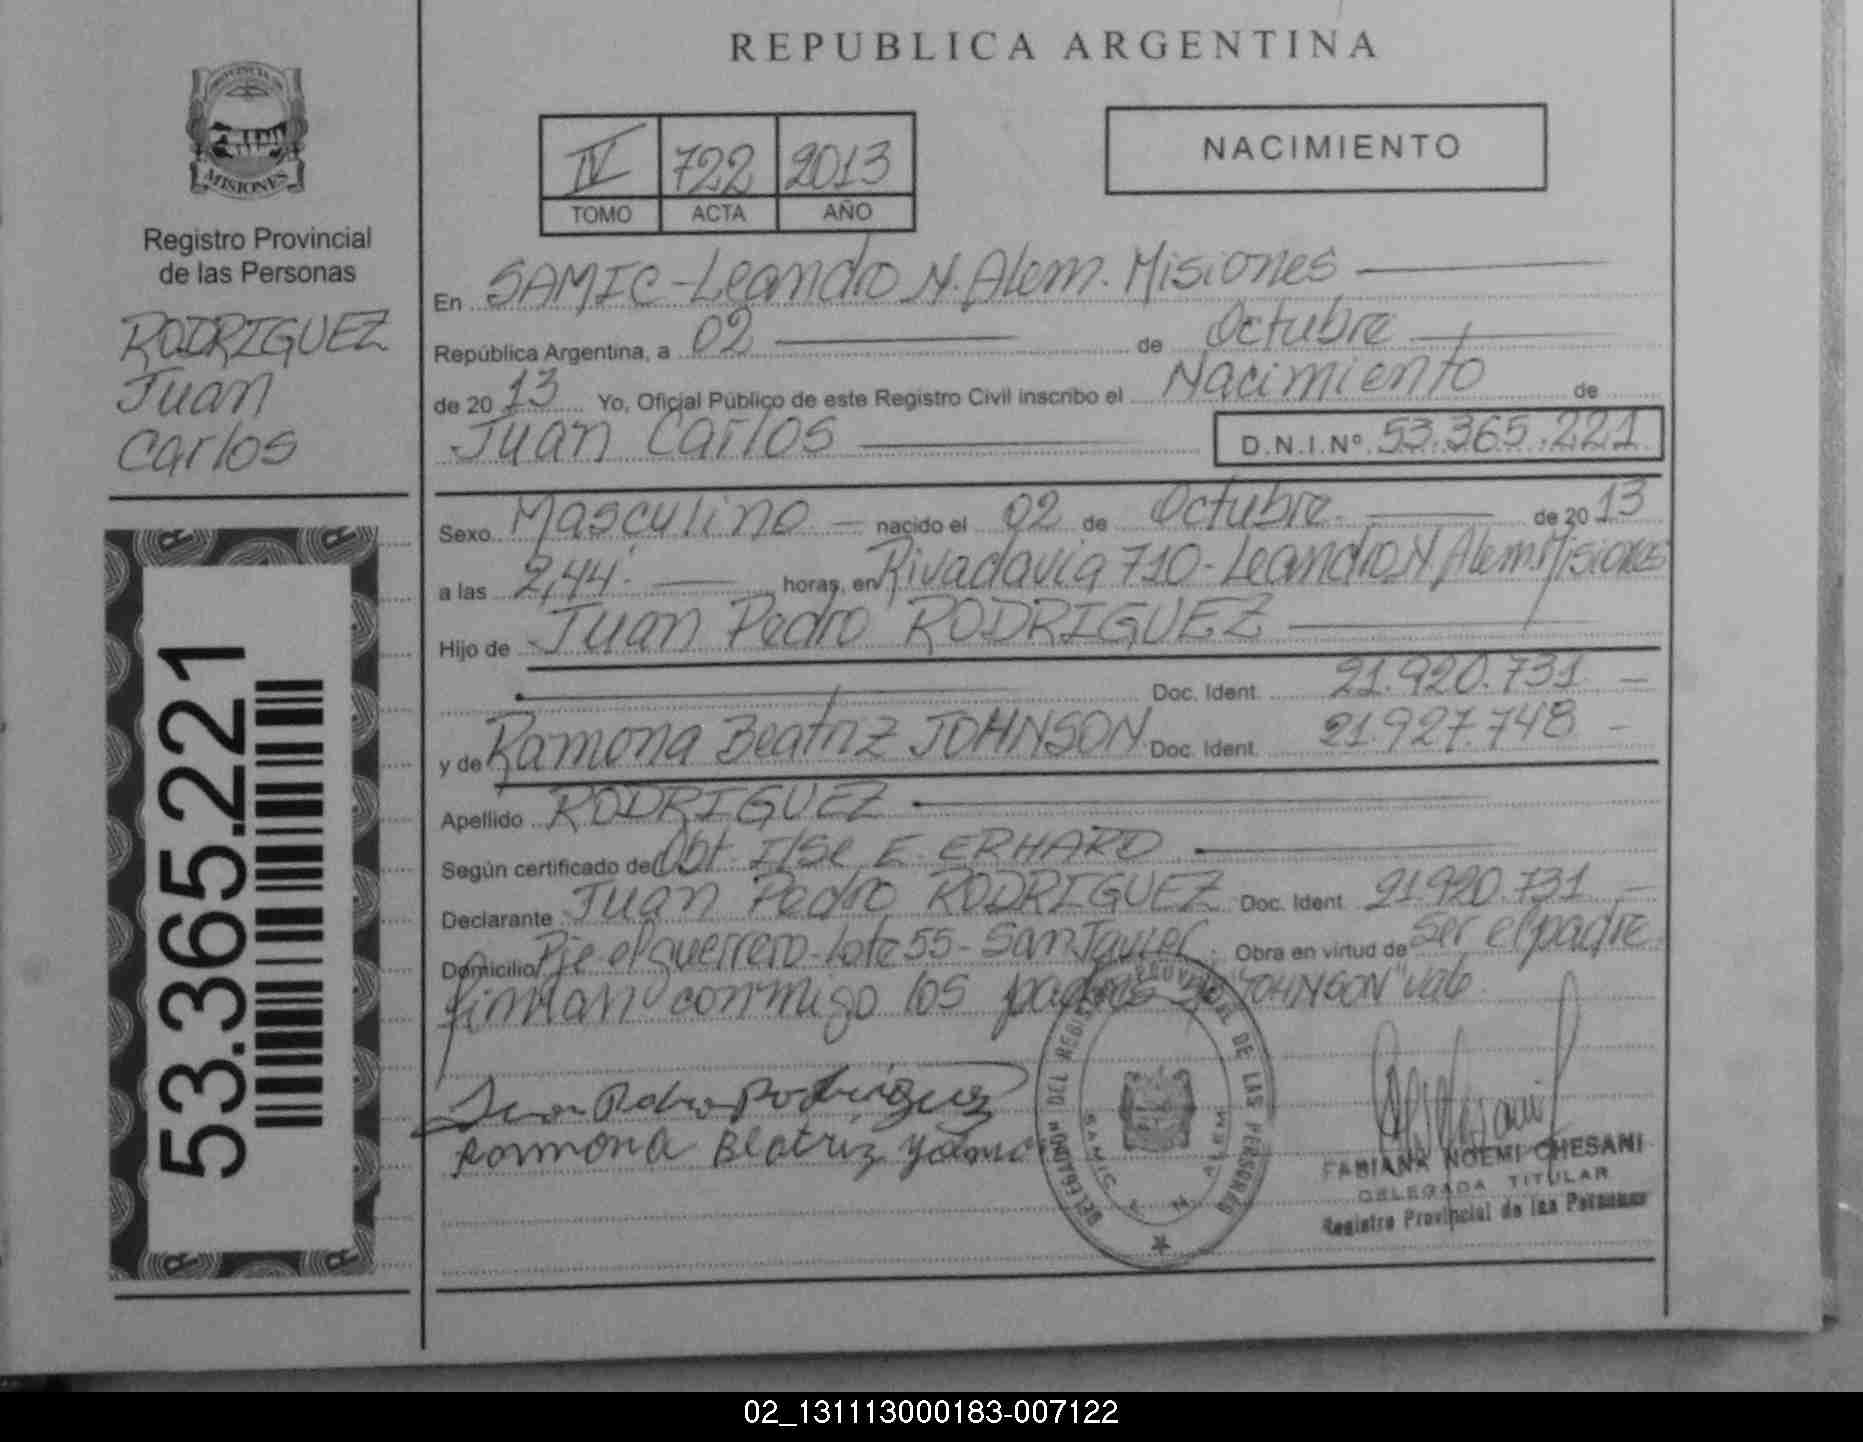 REPUBLICA ARGENTINA
PROVINCIA DE
MISIONES
Registro Provincial
de las Personas
RODRIGUEZ
Juan
Carlos
53.365.221
IV 722 2013
TOMO ACTA AÑO
NACIMIENTO
En SAMIC-Leandro N. Alem. Misiones
República Argentina, a 02 de Octubre
de 2013 Yo, Oficial Público de este Registro Civil inscribo el Nacimiento de
Juan Carlos D.N.I.Nº 53.365.221
Sexo Masculino nacido el 02 de Octubre de 2013
a las 2,44 horas, en Rivadavia 710-Leandro N Alem. Misiones
Hijo de Juan Pedro RODRIGUEZ
Doc. Ident. 21.920.731
y de Ramona Beatriz JOHNSON Doc. Ident. 21.927.748
Apellido RODRIGUEZ
Según certificado de Obt. Ilse E. ERHARD
Declarante Juan Pedro RODRIGUEZ Doc. Ident. 21.920.731
Domicilio Pje el guerrero-Lote 55-San Javier Obra en virtud de ser el padre
firman conmigo los padres "JOHNSON" vale
Juan Pedro Rodriguez
Ramona Beatriz
DELEGACION DEL REGISTRO PROVINCIAL DE LAS PERSONAS
SAMIC L N ALEM
FABIANA NOEMI CHESANI
DELEGADA TITULAR
Registro Provincial de las Personas
02_131113000183-007122